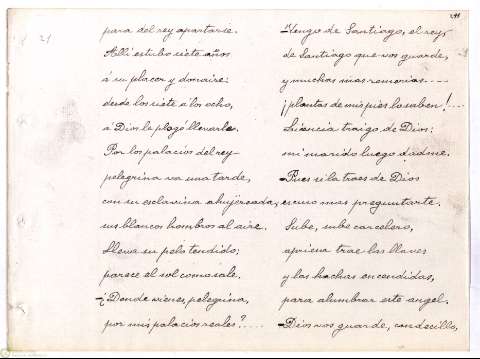 21
para del rey apartarse.
Allí estubo siete años
á su placer y donaire:
desde los siete a los ocho,
a Dios le plogó llevarle.
Por los palacios del rey
pelegrina va una tarde,
con su esclavina ahujereada,
sus blancos hombros al aire.
Lleva su pelo tendido;
parece el sol como sale.
-¿Donde vienes, pelegrina,
por mis palacios reales?....
-Vengo de Santiago, el rey,
de Santiago que vos guarde,
y muchas mas romerías....
¡plantas de mis pies lo saben!....
Licencia traigo de Dios:
mi marido luego dadme.
-Pues si la traes de Dios
escuso mas preguntarte.
Sube, sube carcelero,
apriesa trae las llaves
y las hachas encendidas,
para alumbrar este angel.
-Dios vos guarde, condecillo,